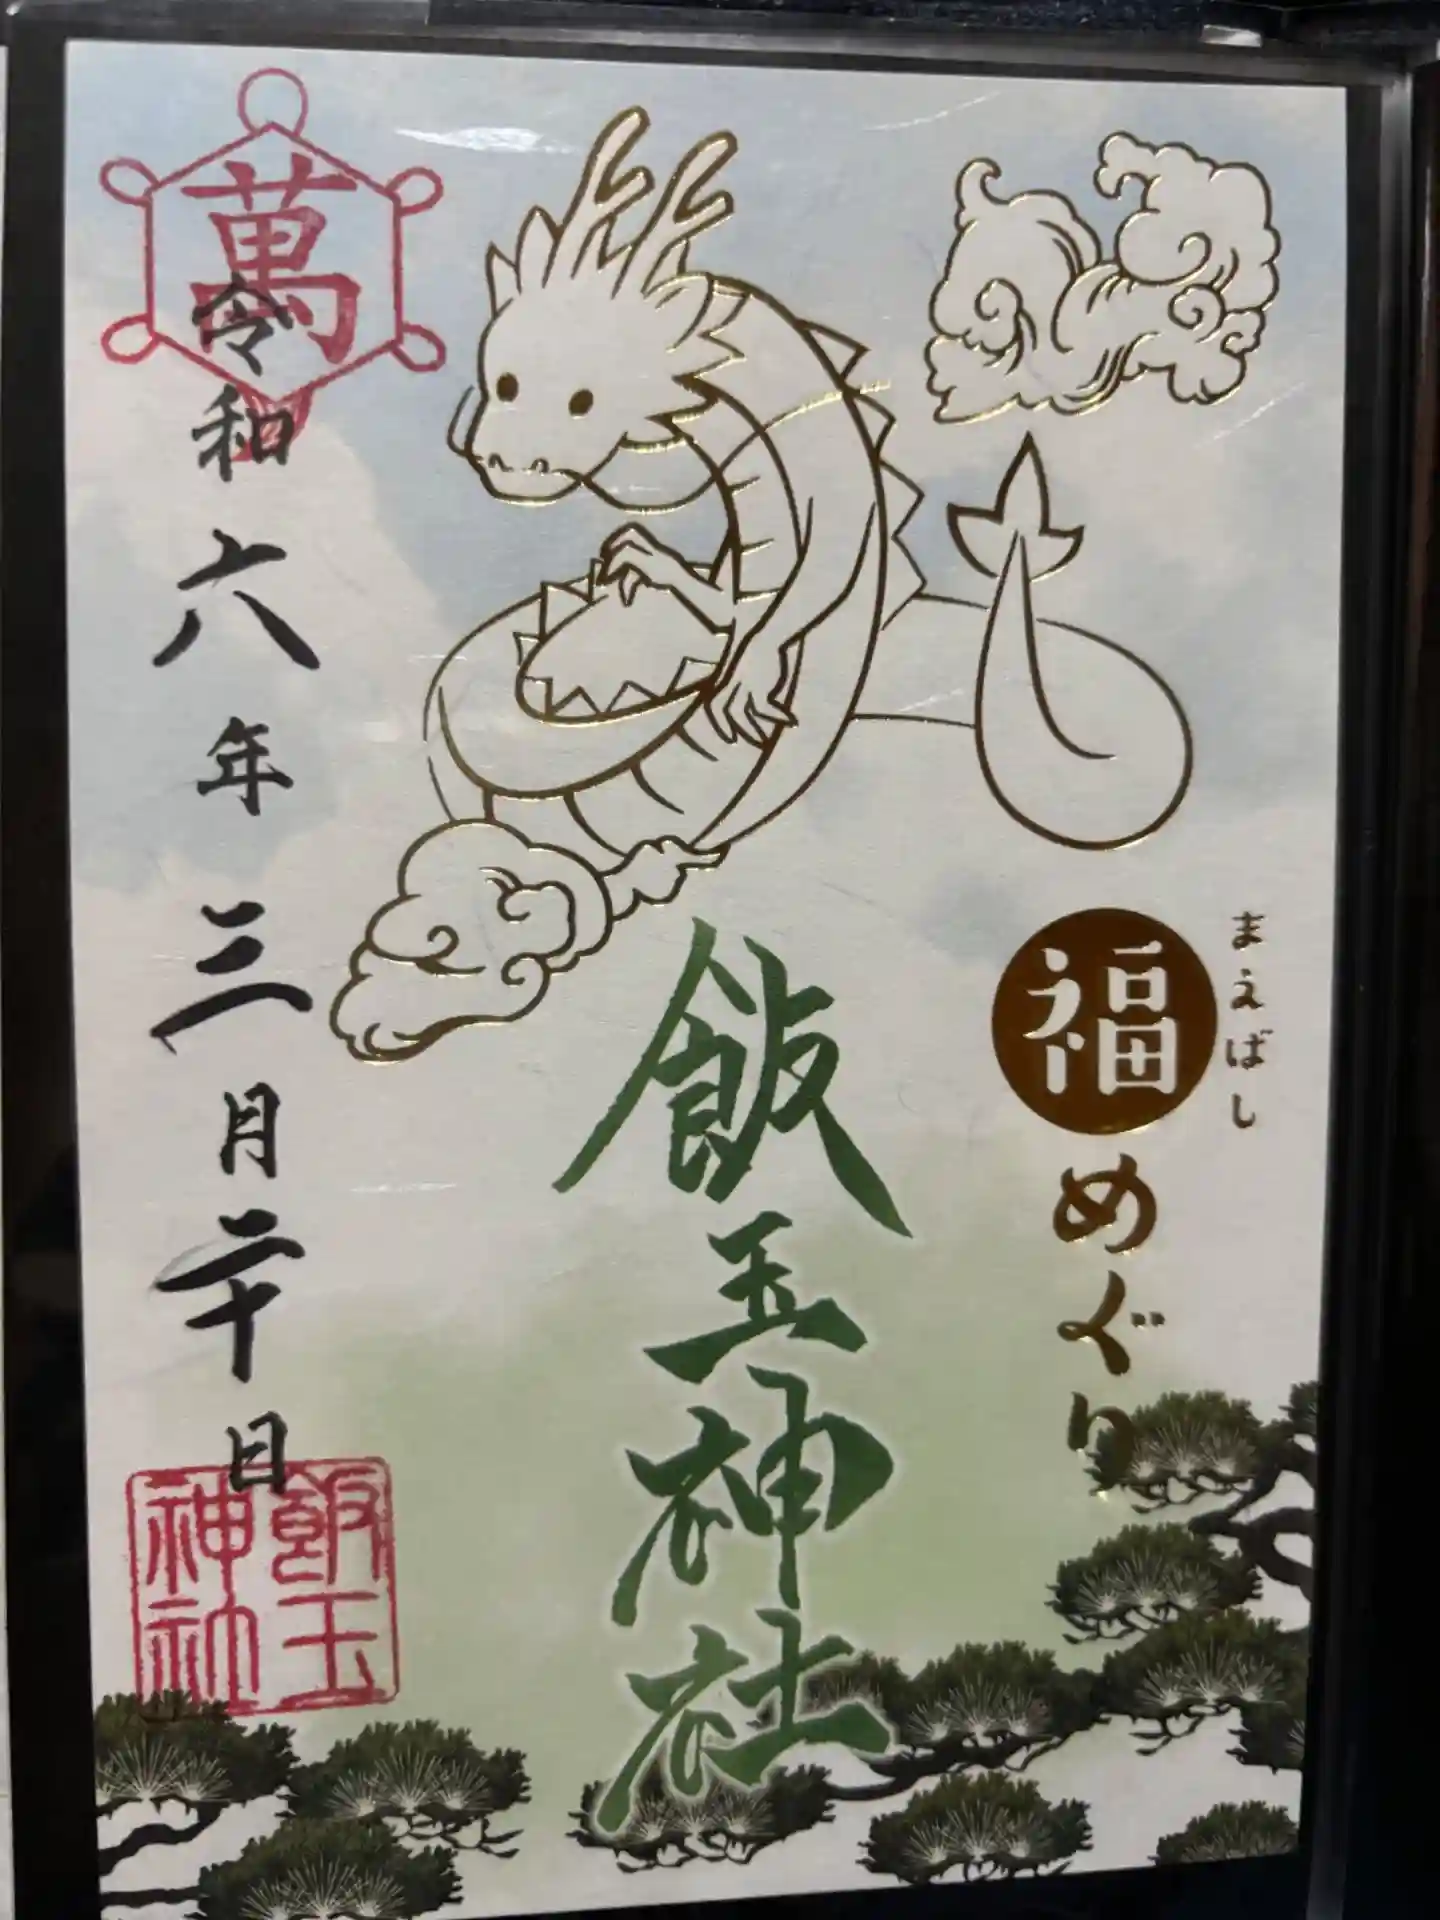 まえばし
福めぐり
飯玉神社
萬
令和六年三月二十日
飯玉
神社